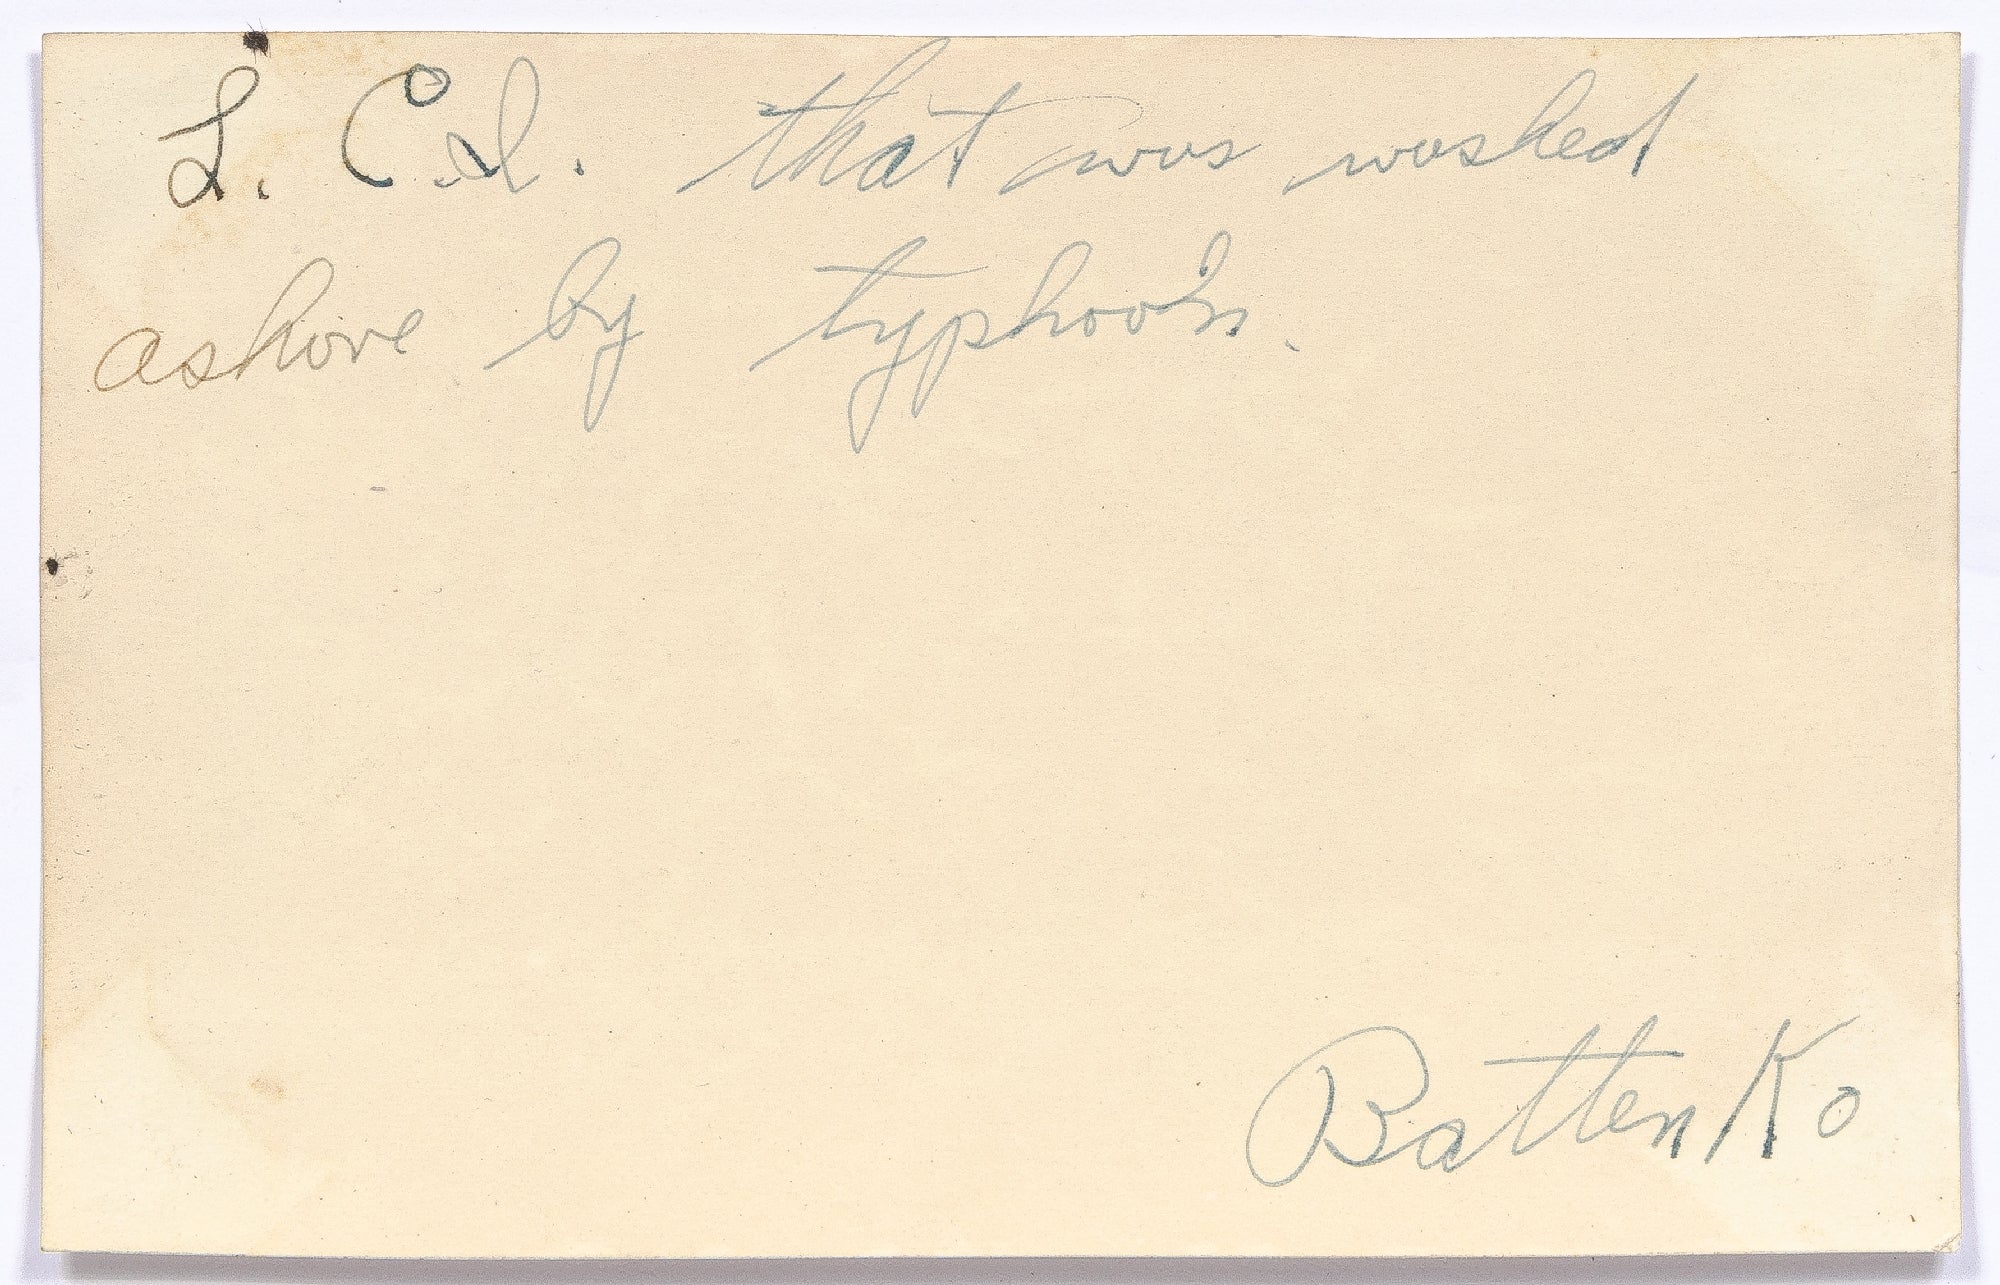 L. C. I. that was washed
ashore by typhoon.
Batten Ko